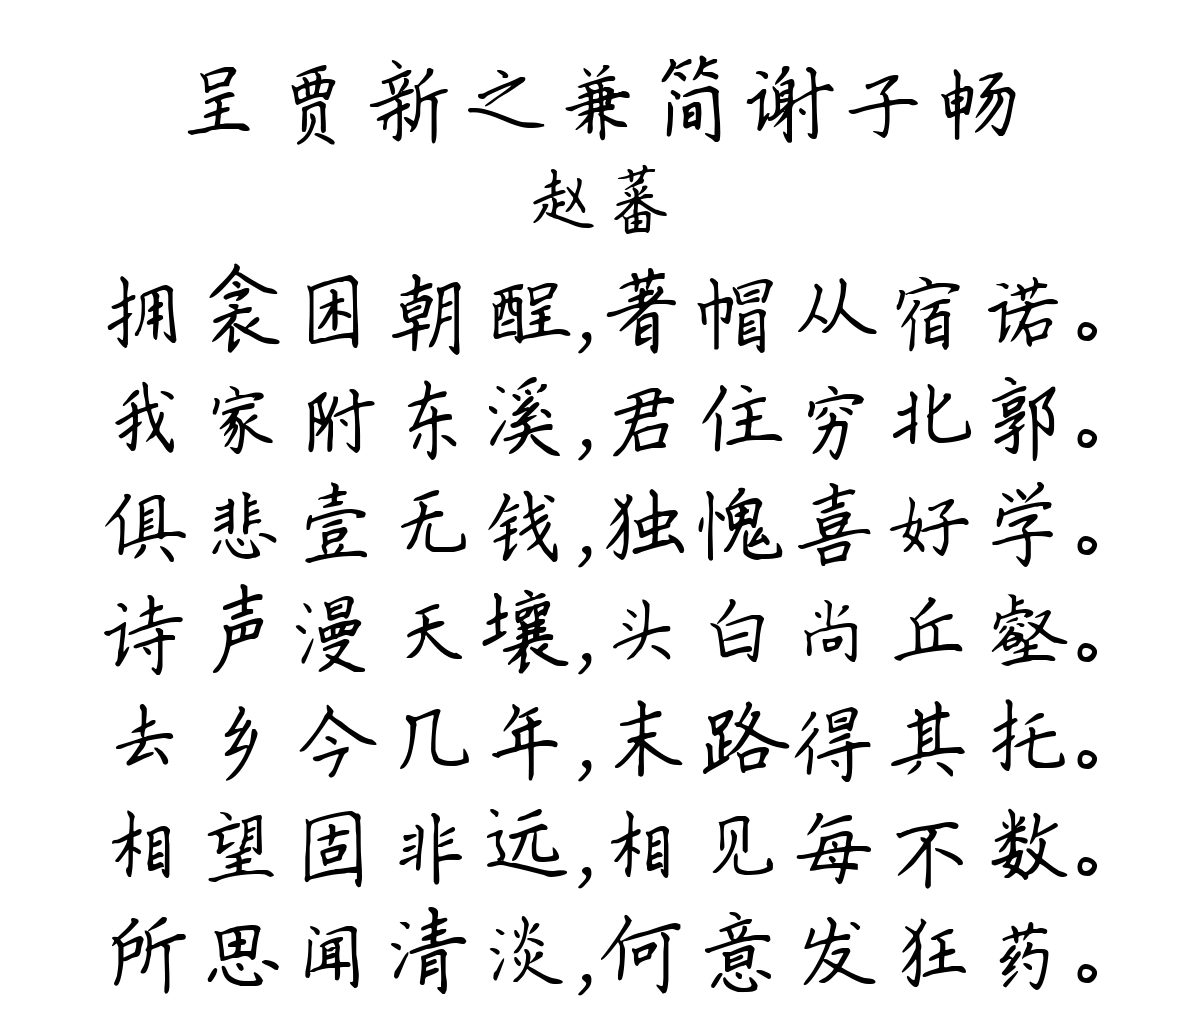 呈贾新之兼简谢子畅
赵蕃
拥衾困朝酲,著帽从宿诺。
我家附东溪,君住穷北郭。
俱悲壹无钱,独愧喜好学。
诗声漫天壤,头白尚丘壑。
去乡今几年,末路得其托。
相望固非远,相见每不数。
所思闻清淡,何意发狂药。